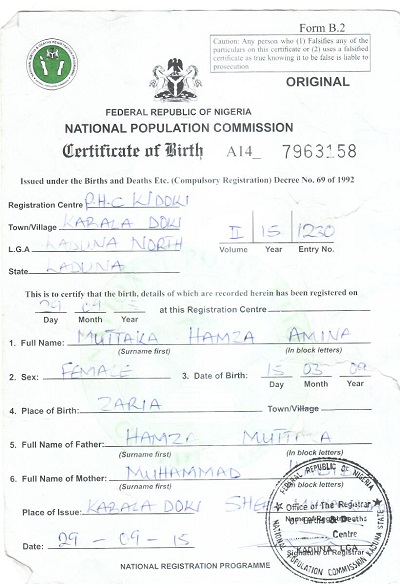 Form B.2
Caution: Any person who (1) Falsifies any of the
particulars on this certificate or (2) uses a falsified
certificate as true knowing it to be false is liable to
prosecution
ORIGINAL
FEDERAL REPUBLIC OF NIGERIA
NATIONAL POPULATION COMMISSION
Certificate of Birth A14_ 7963158
Issued under the Births and Deaths Etc. (Compulsory Registration) Decree No. 69 of 1992
Registration Centre P.H.C K/DOKI
Town/Village KABALA DOKI
L.G.A KADUNA NORTH
State KADUNA
II 15 1230
Volume Year Entry No.
This is to certify that the birth, details of which are recorded herein has been registered on
29 09 15 at this Registration Centre
Day Month Year
1. Full Name: MUTTAKA HAMZA AMINA
(Surname first) (In block letters)
2. Sex: FEMALE 3. Date of Birth: 15 03 09
Day Month Year
4. Place of Birth: ZARIA Town/Village
5. Full Name of Father: HAMZA
(Surname first) (In block letters)
6. Full Name of Mother: MUHAMMAD
(Surname first) (In block letters)
Place of Issue: KABALA DOKI
Name of Registrar
Date: 29 - 09 - 15
Signature of Registrar
FEDERAL REPUBLIC OF NIGERIA
Office of The Registrar
Of Births & Deaths
Centre
KADUNA, LGA
NATIONAL POPULATION COMMISSION KADUNA STATE
NATIONAL REGISTRATION PROGRAMME